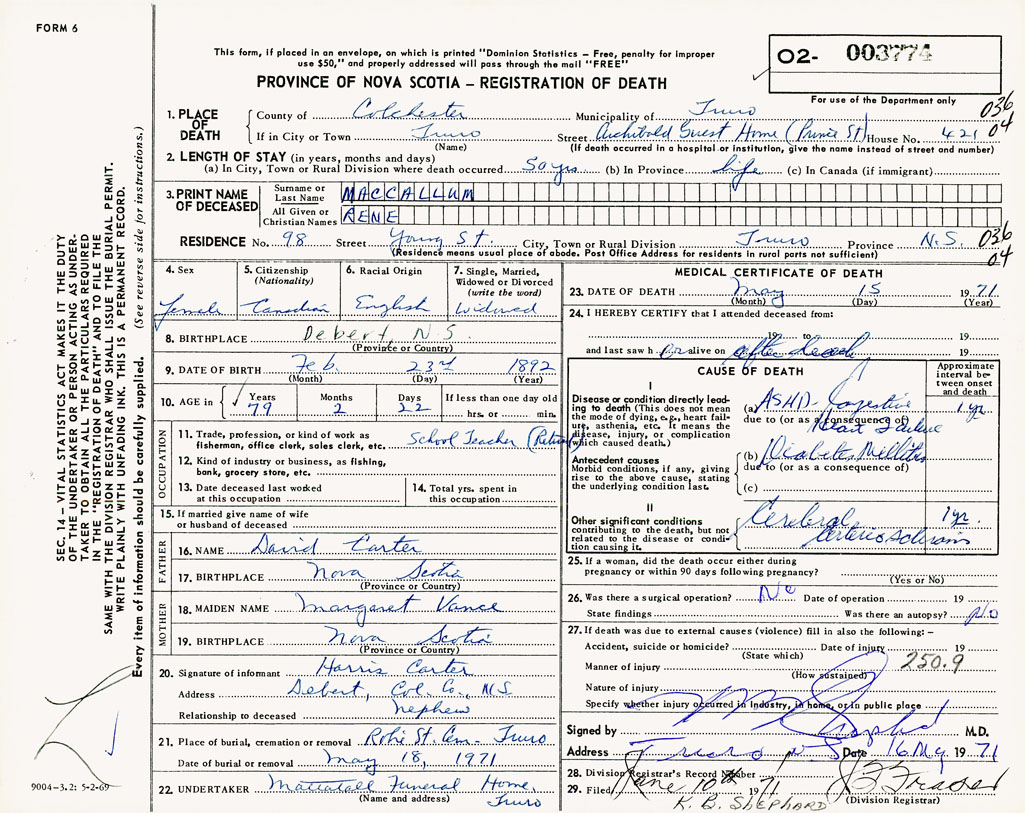 FORM 6
This form, if placed in an envelope, on which is printed "Dominion Statistics – Free, penalty for improper
use $50," and properly addressed will pass through the mail "FREE"
PROVINCE OF NOVA SCOTIA – REGISTRATION OF DEATH
02- 003774
For use of the Department only
036
04
1. PLACE OF DEATH
County of Colchester Municipality of Truro
If in City or Town Truro Street Archibold Guest Home (Prince St) House No. 421
(Name) (If death occurred in a hospital or institution, give the name instead of street and number)
2. LENGTH OF STAY (in years, months and days)
(a) In City, Town or Rural Division where death occurred 50 yrs (b) In Province life (c) In Canada (if immigrant)
3. PRINT NAME OF DECEASED
Surname or Last Name MACCALLUM
All Given or Christian Names RENE
RESIDENCE No. 98 Street Young St. City, Town or Rural Division Truro Province N.S. 036
04
(Residence means usual place of abode. Post Office Address for residents in rural parts not sufficient)
4. Sex female
5. Citizenship (Nationality) Canadian
6. Racial Origin English
7. Single, Married, Widowed or Divorced (write the word) Widowed
8. BIRTHPLACE Debert, N.S
(Province or Country)
9. DATE OF BIRTH Feb. 23rd 1892
(Month) (Day) (Year)
10. AGE in Years 79 Months 2 Days 22 If less than one day old hrs. or min.
OCCUPATION
11. Trade, profession, or kind of work as fisherman, office clerk, sales clerk, etc. School Teacher (Retired)
12. Kind of industry or business, as fishing, bank, grocery store, etc.
13. Date deceased last worked at this occupation
14. Total yrs. spent in this occupation
15. If married give name of wife or husband of deceased
FATHER
16. NAME David Carter
17. BIRTHPLACE Nova Scotia
(Province or Country)
MOTHER
18. MAIDEN NAME Margaret Vance
19. BIRTHPLACE Nova Scotia
(Province or Country)
20. Signature of informant Harris Carter
Address Debert, Col. Co., N.S.
Relationship to deceased nephew
21. Place of burial, cremation or removal Robie St. Cem. Truro
Date of burial or removal May 18, 1971
22. UNDERTAKER Mattatall Funeral Home, Truro
(Name and address)
MEDICAL CERTIFICATE OF DEATH
23. DATE OF DEATH May 15 1971
(Month) (Day) (Year)
24. I HEREBY CERTIFY that I attended deceased from:
19 to 19
and last saw her alive on after death 19
CAUSE OF DEATH
Approximate interval between onset and death
I
Disease or condition directly leading to death (This does not mean the mode of dying, e.g., heart failure, asthenia, etc. It means the disease, injury, or complication which caused death.)
(a) ASHD- Congestive 1 yr
due to (or as a consequence of) Heart Failure
Antecedent causes
Morbid conditions, if any, giving rise to the above cause, stating the underlying condition last.
(b) Diabetes Millitis
due to (or as a consequence of)
(c)
II
Other significant conditions contributing to the death, but not related to the disease or condition causing it.
Cerebral 1 yr.
Arteriosclerosis
25. If a woman, did the death occur either during pregnancy or within 90 days following pregnancy?
(Yes or No)
26. Was there a surgical operation? No Date of operation 19
State findings Was there an autopsy? No
27. If death was due to external causes (violence) fill in also the following: –
Accident, suicide or homicide? Date of injury 19
(State which) 250.9
Manner of injury
(How sustained)
Nature of injury
Specify whether injury occurred in industry, in home, or in public place
Signed by M.D.
Address Truro NS Date 16 My 1971
28. Division Registrar's Record Number
29. Filed June 10th 1971
K. B. SHEPHARD (Division Registrar)
SEC. 14 – VITAL STATISTICS ACT MAKES IT THE DUTY
OF THE UNDERTAKER OR PERSON ACTING AS UNDER-
TAKER TO OBTAIN ALL THE PARTICULARS REQUIRED
IN THE "REGISTRATION OF DEATH" AND TO FILE THE
SAME WITH THE DIVISION REGISTRAR WHO SHALL ISSUE THE BURIAL PERMIT.
WRITE PLAINLY WITH UNFADING INK. THIS IS A PERMANENT RECORD.
Every item of information should be carefully supplied. (See reverse side for instructions.)
9004-3.2: 5-2-69